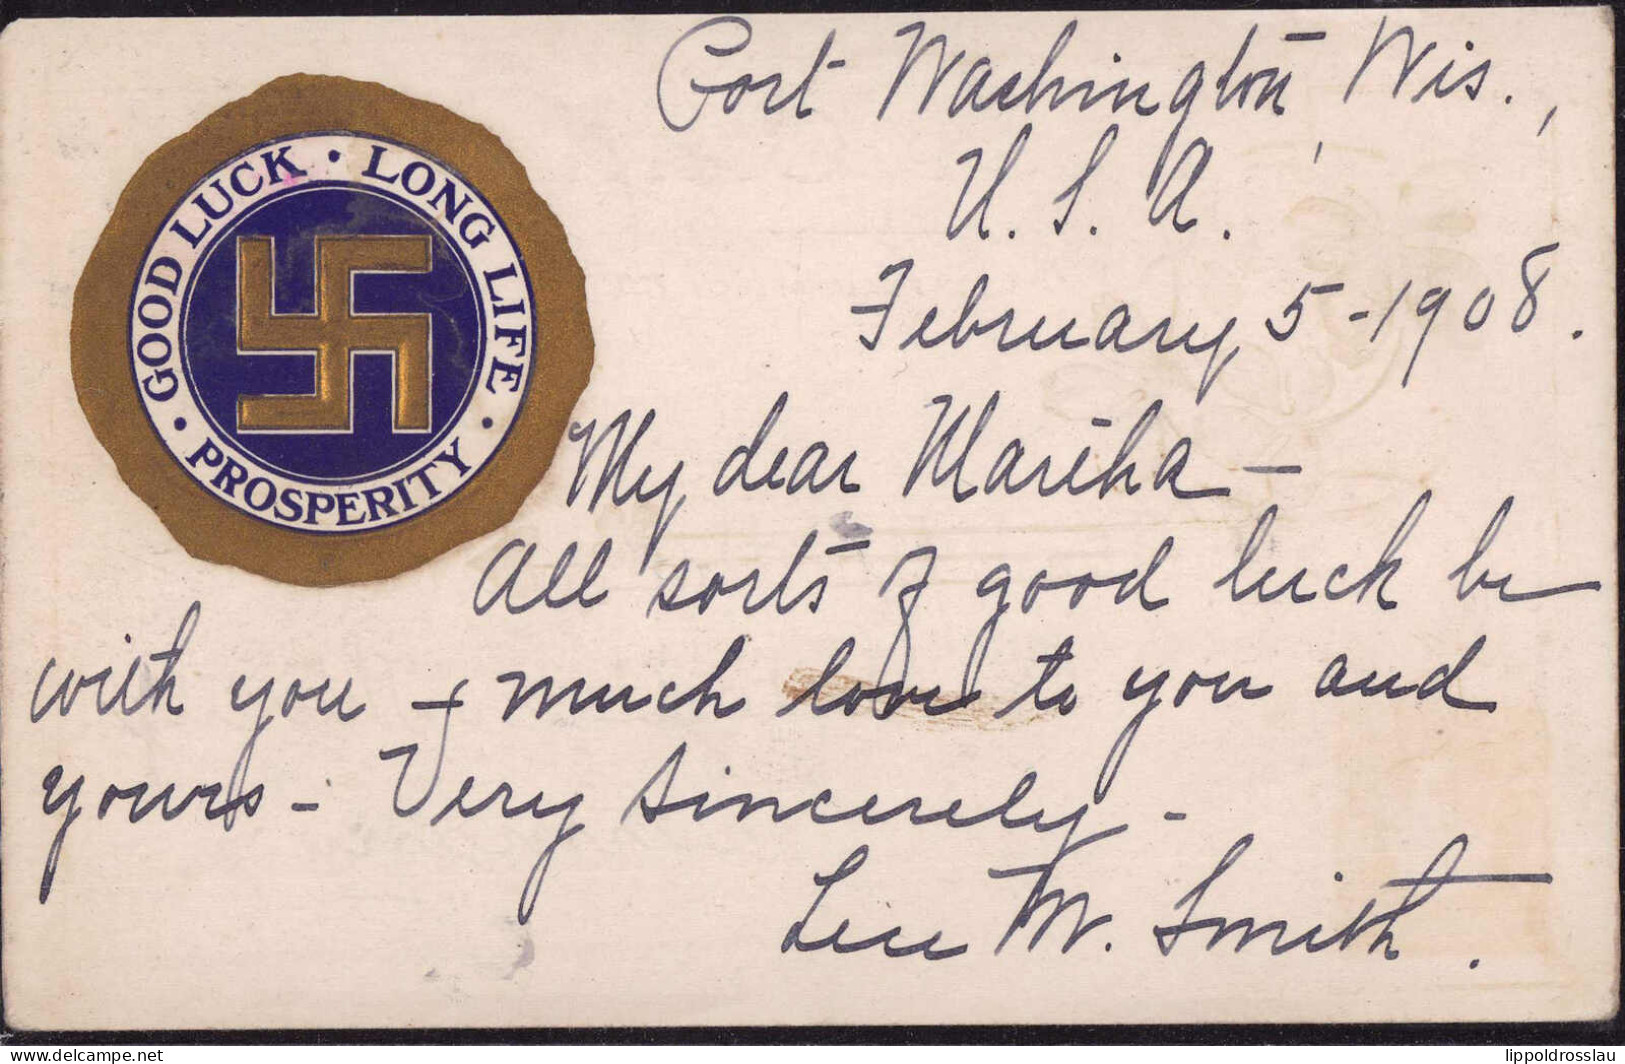 GOOD LUCK · LONG LIFE · PROSPERITY ·
Port Washington, Wis.,
U. S. A.
February 5-1908.
My dear Martha -
All sorts of good luck be
with you + much love to you and
yours - Very sincerely -
M. Smith.
delcampe.net
lippoldrosslau